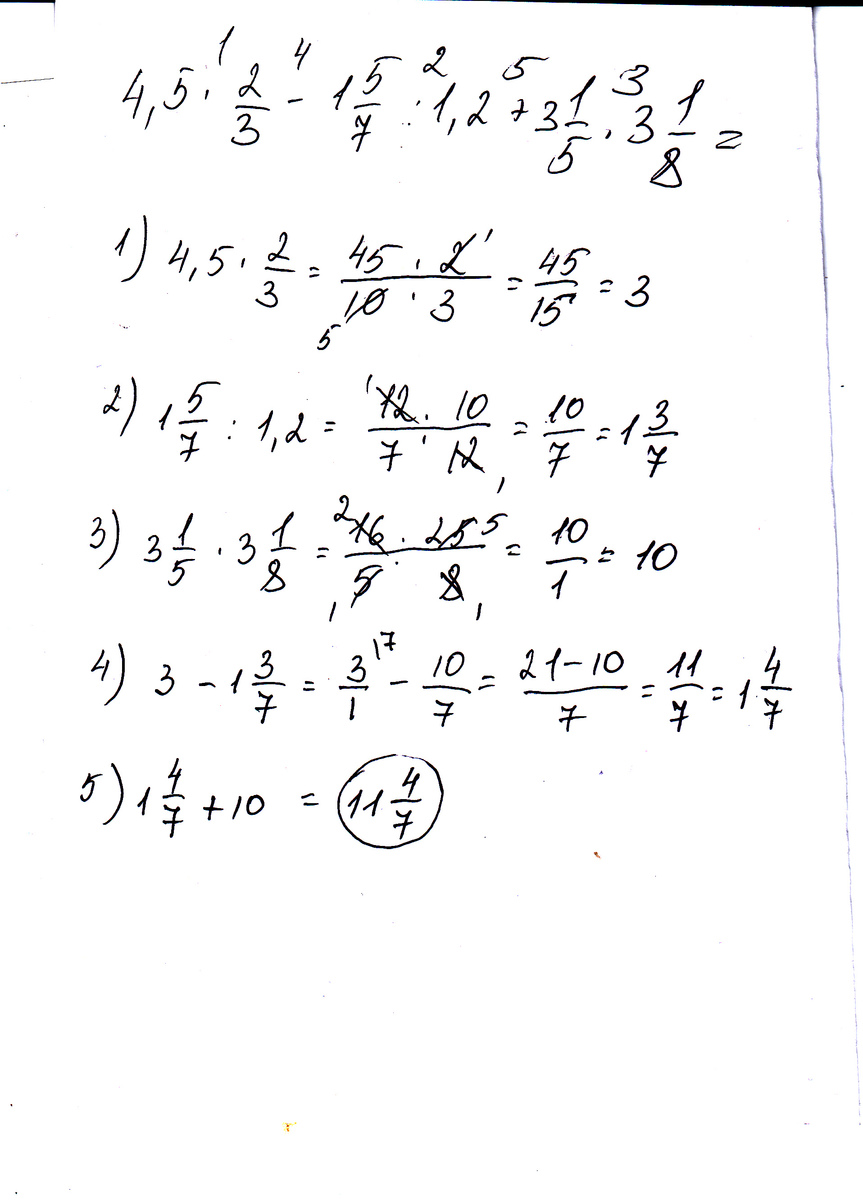 4,5 · 2/3 - 1 5/7 : 1,2 + 3 1/5 · 3 1/8 =
1) 4,5 · 2/3 = 45 · 2/10 · 3 = 45/15 = 3
2) 1 5/7 : 1,2 = 12 · 10/7 · 12 = 10/7 = 1 3/7
3) 3 1/5 · 3 1/8 = 16 · 25/5 · 8 = 10/1 = 10
4) 3 - 1 3/7 = 3/1 - 10/7 = 21-10/7 = 11/7 = 1 4/7
5) 1 4/7 + 10 = 11 4/7